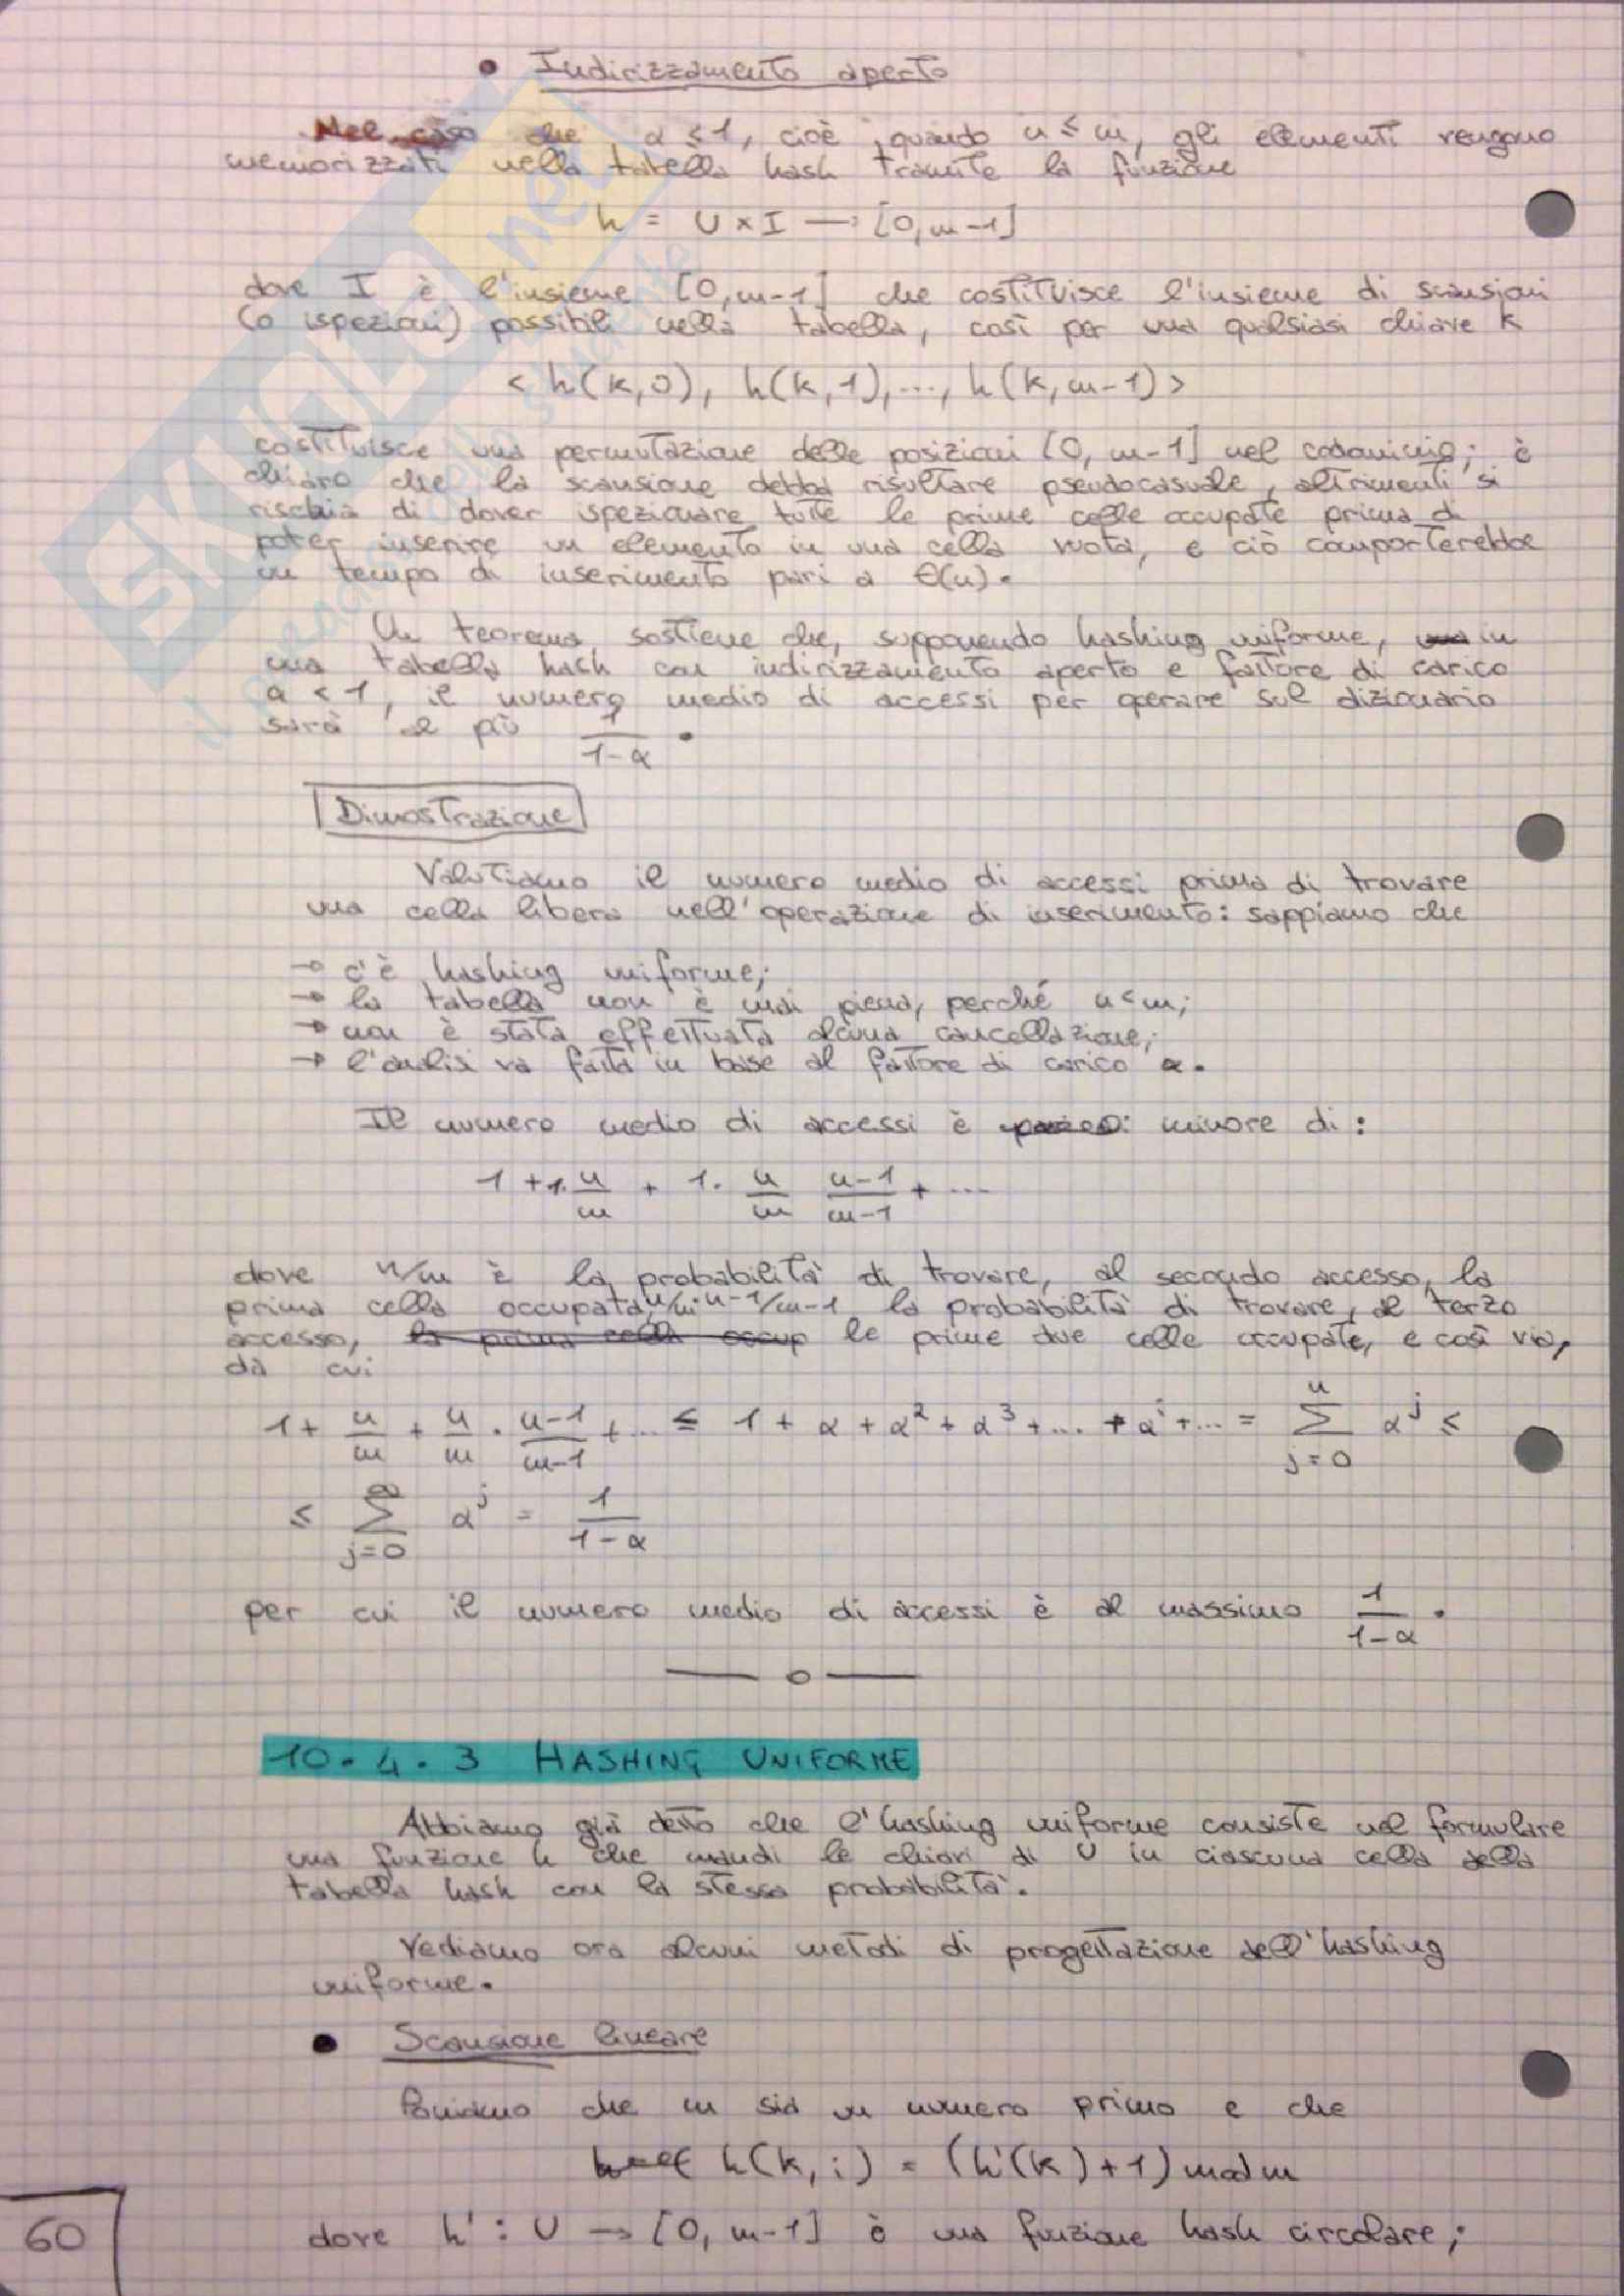 • Indirizzamento aperto
Nel caso che α ≤ 1, cioè quando n ≤ m, gli elementi vengono
memorizzati nella tabella hash tramite la funzione
h = U × I → [0, m-1]
dove I è l'insieme [0, m-1] che costituisce l'insieme di scansioni
(o ispezioni) possibili nella tabella, così per una qualsiasi chiave k
< h(k,0), h(k,1), ..., h(k,m-1) >
costituisce una permutazione delle posizioni [0, m-1] nel codominio; è
chiaro che la scansione debba risultare pseudocasuale, altrimenti si
rischia di dover ispezionare tutte le prime celle occupate prima di
poter inserire un elemento in una cella vuota, e ciò comporterebbe
un tempo di inserimento pari a Θ(n).
Un teorema sostiene che, supponendo hashing uniforme, in
una tabella hash con indirizzamento aperto e fattore di carico
α < 1, il numero medio di accessi per operare sul dizionario
sarà al più 1/(1-α).
Dimostrazione
Valutiamo il numero medio di accessi prima di trovare
una cella libera nell'operazione di inserimento: sappiamo che
→ c'è hashing uniforme;
→ la tabella non è mai piena, perché n < m;
→ non è stata effettuata alcuna cancellazione;
→ l'analisi va fatta in base al fattore di carico α.
Il numero medio di accessi è minore di:
1 + 1· n/m + 1· n/m (n-1)/(m-1) + ...
dove n/m è la probabilità di trovare, al secondo accesso, la
prima cella occupata, n/m · n-1/m-1 la probabilità di trovare, al terzo
accesso, le prime due celle occupate, e così via,
da cui
1 + n/m + n/m · (n-1)/(m-1) + ... ≤ 1 + α + α² + α³ + ... + αⁱ + ... = Σ_{j=0}^{n} α^j ≤
≤ Σ_{j=0}^{∞} α^j = 1/(1-α)
per cui il numero medio di accessi è al massimo 1/(1-α).
— o —
10.4.3 HASHING UNIFORME
Abbiamo già detto che l'hashing uniforme consiste nel formulare
una funzione h che mandi le chiavi di U in ciascuna cella della
tabella hash con la stessa probabilità.
Vediamo ora alcuni metodi di progettazione dell'hashing
uniforme.
• Scansione lineare
Poniamo che m sia un numero primo e che
h(k,i) = (h'(k)+1) mod m
60
dove h' : U → [0, m-1] è una funzione hash circolare;
SKUOLA.net